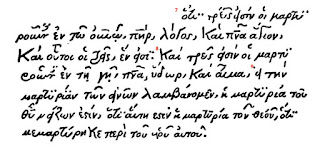 7 ὅτι τρεῖς εἰσιν οἱ μαρτυ
ροῦντ̓ ἐν τῷ οὐνῷ, πηρ, λόγος, καὶ πνα ἅγιον,
καὶ οὗτοι οἱ τρεῖς, ἕν εἰσι. 8 καὶ τρεῖς εἰσιν οἱ μαρτυ
ροῦντ̓ ἐν τῇ γῇ, πνα, ὕδωρ, καὶ αἷμα, 9 εἰ τὴν
μαρτυρίαν τῶν ἀνων λαμβάνομεν, ἡ μαρτυρία τοῦ
θυ μείζων ἐστίν, ὅτι αὕτη ἐστὶν ἡ μαρτυρία τοῦ θεοῦ, ὅτι
μεμαρτύρηκε περὶ τοῦ υἱοῦ αὐτοῦ.